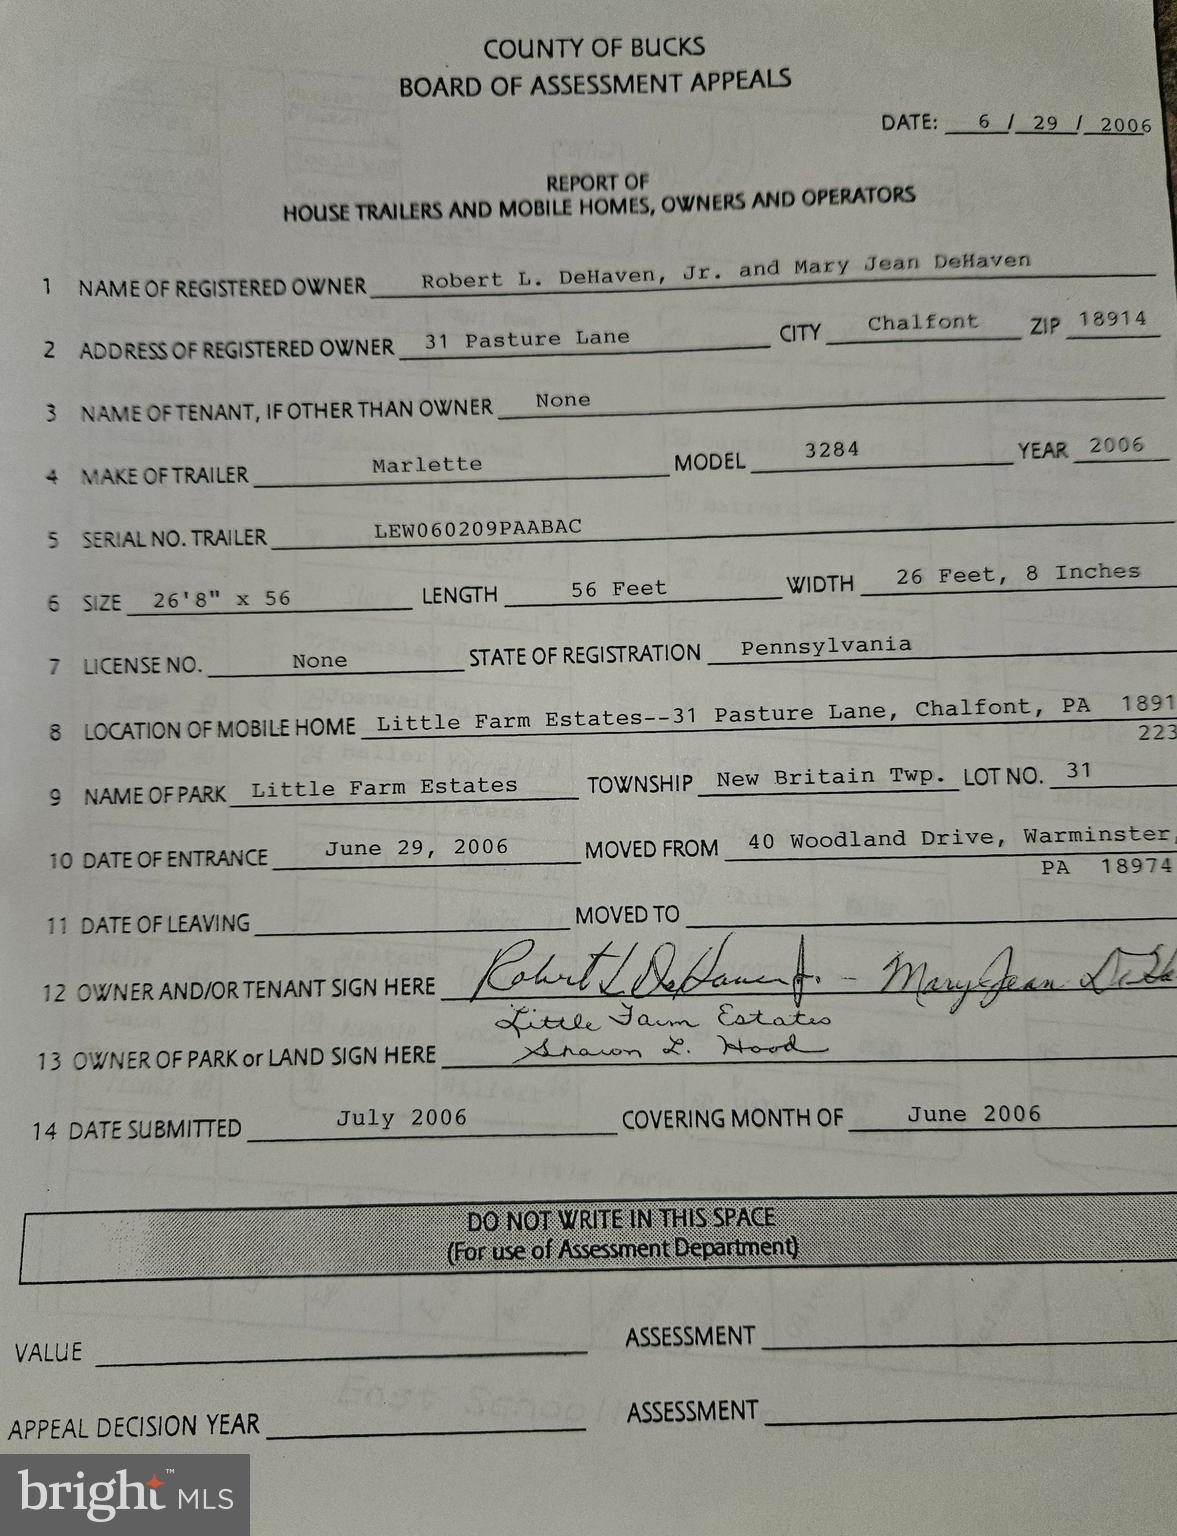 COUNTY OF BUCKS
BOARD OF ASSESSMENT APPEALS
DATE: 6 / 29 / 2006
REPORT OF
HOUSE TRAILERS AND MOBILE HOMES, OWNERS AND OPERATORS
1 NAME OF REGISTERED OWNER Robert L. DeHaven, Jr. and Mary Jean DeHaven
2 ADDRESS OF REGISTERED OWNER 31 Pasture Lane CITY Chalfont ZIP 18914
3 NAME OF TENANT, IF OTHER THAN OWNER None
4 MAKE OF TRAILER Marlette MODEL 3284 YEAR 2006
5 SERIAL NO. TRAILER LEW060209PAABAC
6 SIZE 26'8" x 56 LENGTH 56 Feet WIDTH 26 Feet, 8 Inches
7 LICENSE NO. None STATE OF REGISTRATION Pennsylvania
8 LOCATION OF MOBILE HOME Little Farm Estates--31 Pasture Lane, Chalfont, PA 1891
223
9 NAME OF PARK Little Farm Estates TOWNSHIP New Britain Twp. LOT NO. 31
10 DATE OF ENTRANCE June 29, 2006 MOVED FROM 40 Woodland Drive, Warminster,
PA 18974
11 DATE OF LEAVING MOVED TO
12 OWNER AND/OR TENANT SIGN HERE Robert L DeHaven Jr. - Mary Jean DeHa
Little Farm Estates
13 OWNER OF PARK or LAND SIGN HERE Sharon L. Hood
14 DATE SUBMITTED July 2006 COVERING MONTH OF June 2006
DO NOT WRITE IN THIS SPACE
(For use of Assessment Department)
VALUE ASSESSMENT
APPEAL DECISION YEAR ASSESSMENT
bright™ MLS